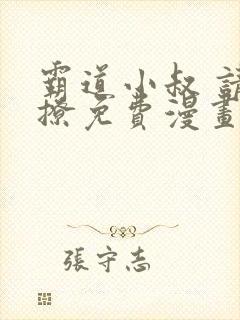 霸道小叔 請
撩免費漫畫
張守志